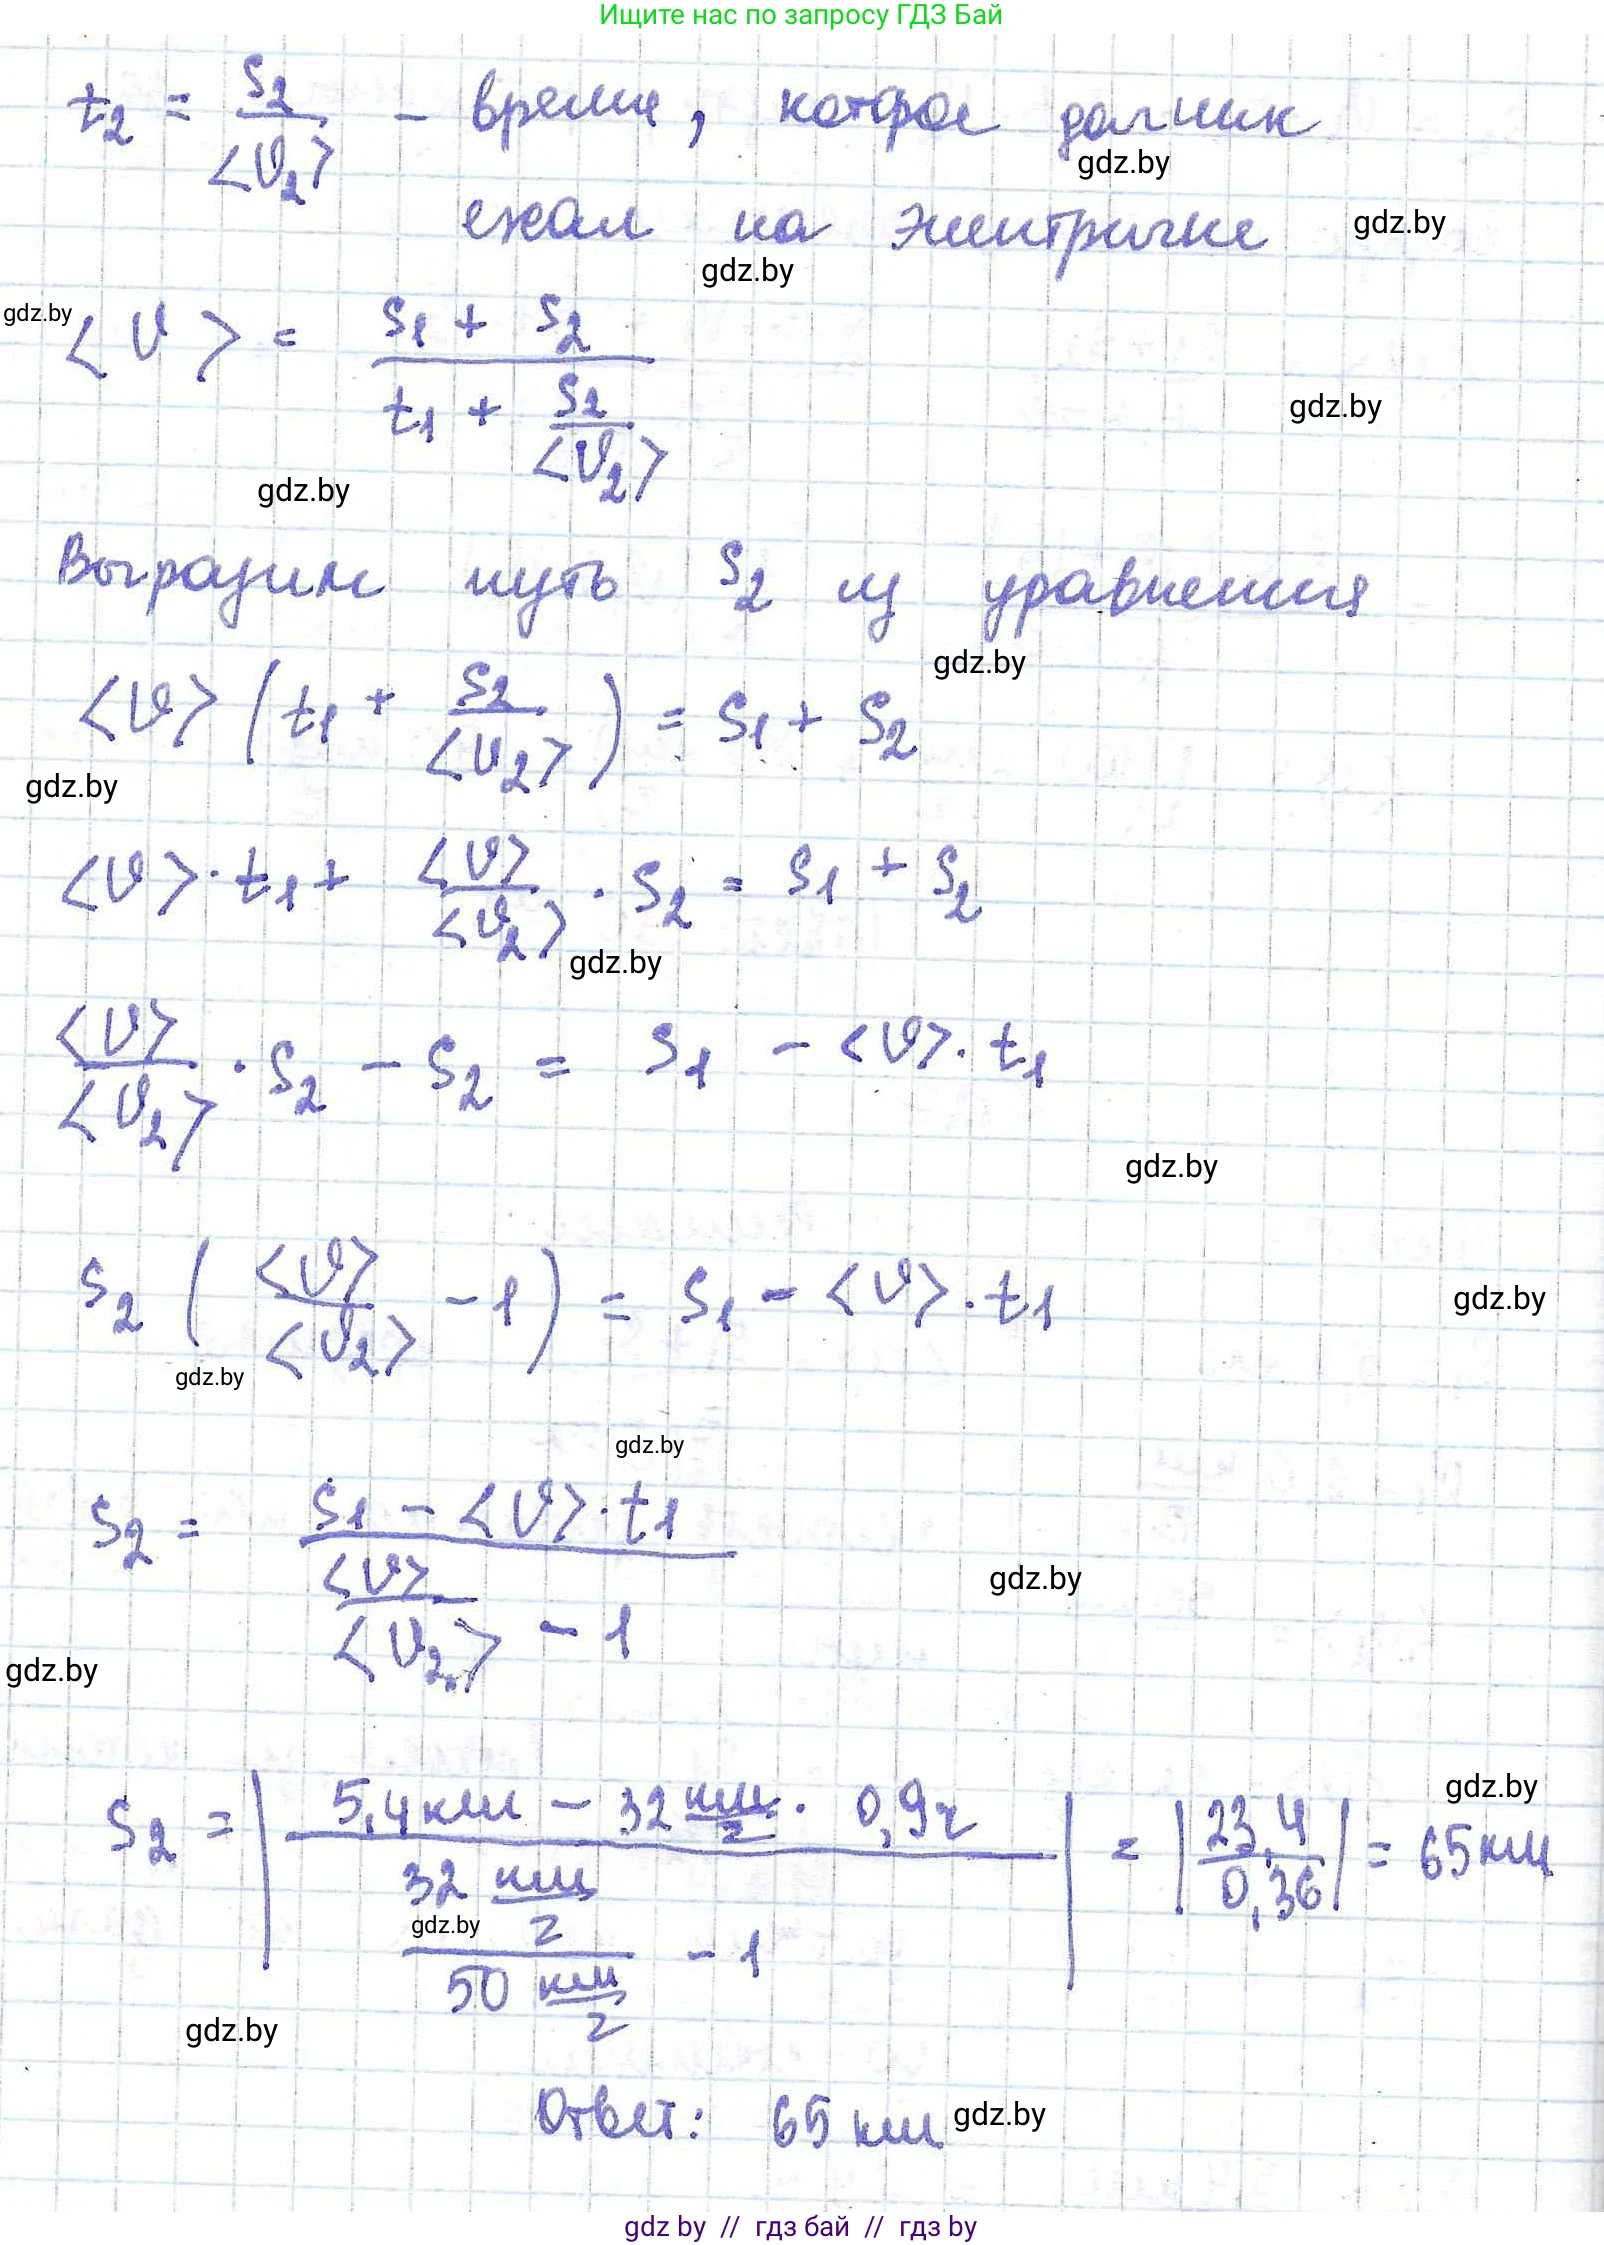 Ищите нас по запросу ГДЗ Бай
t₂ = s₂/<υ₂> – время, которое дачник
gdz.by
ехал на электричке
gdz.by
gdz.by
gdz.by
<υ> = (s₁ + s₂)/(t₁ + s₂/<υ₂>)
gdz.by
gdz.by
Выразим путь s₂ из уравнения
gdz.by
<υ>(t₁ + s₂/<υ₂>) = s₁ + s₂
gdz.by
<υ>·t₁ + <υ>/<υ₂> · s₂ = s₁ + s₂
gdz.by
<υ>/<υ₂> · s₂ – s₂ = s₁ – <υ>·t₁
gdz.by
s₂(<υ>/<υ₂> – 1) = s₁ – <υ>·t₁
gdz.by
gdz.by
gdz.by
s₂ = (s₁ – <υ>·t₁)/(<υ>/<υ₂> – 1)
gdz.by
gdz.by
gdz.by
s₂ = |(5,4 км – 32 км/ч · 0,9 ч)/(32 км/ч / 50 км/ч – 1)| = |23,4/0,36| = 65 км
gdz.by
gdz.by
Ответ: 65 км
gdz.by
gdz by // гдз бай // гдз by